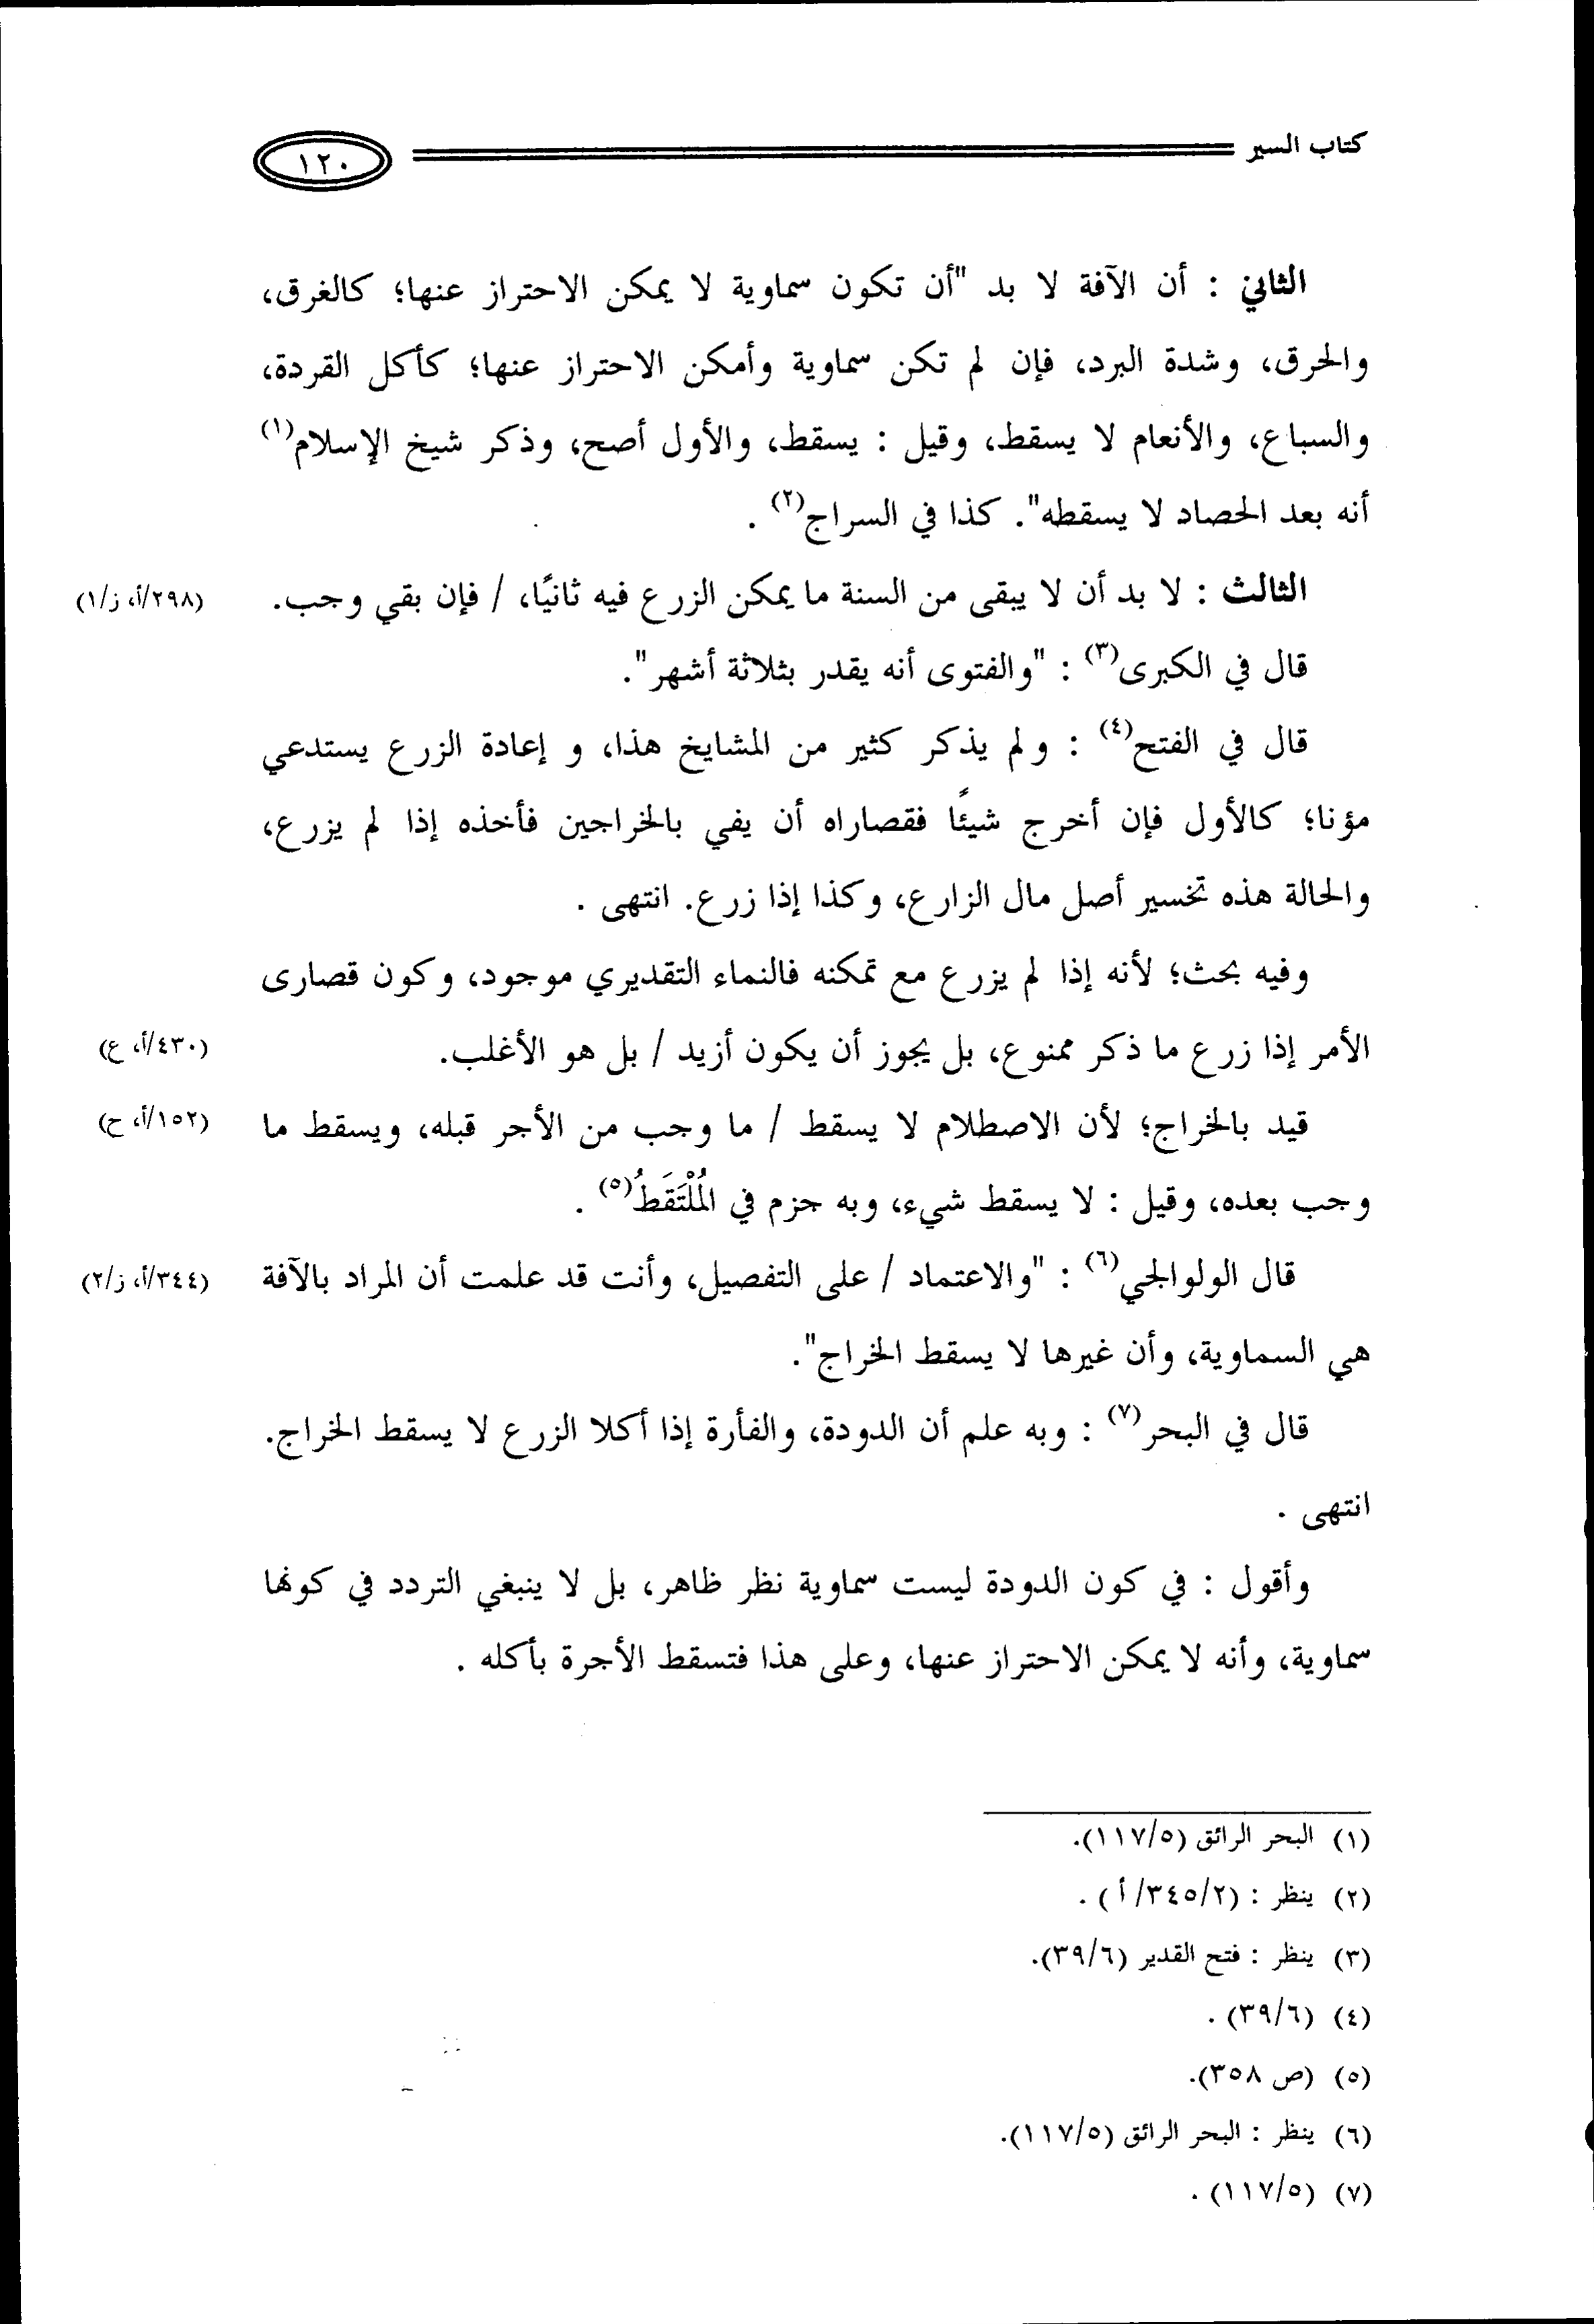 كتاب السير
١٢٠
الثاني : أن الآفة لا بد "أن تكون سماوية لا يمكن الاحتراز عنها؛ كالغرق،
والحرق، وشدة البرد، فإن لم تكن سماوية وأمكن الاحتراز عنها؛ كأكل القردة،
والسباع، والأنعام لا يسقط، وقيل : يسقط، والأول أصح، وذكر شيخ الإسلام(١)
أنه بعد الحصاد لا يسقطه". كذا في السراج(٢) .
الثالث : لا بد أن لا يبقى من السنة ما يمكن الزرع فيه ثانيًا، / فإن بقي وجب.
(٢٩٨/أ، ز/١)
قال في الكبرى(٣) : "والفتوى أنه يقدر بثلاثة أشهر".
قال في الفتح(٤) : ولم يذكر كثير من المشايخ هذا، و إعادة الزرع يستدعي
مؤنا؛ كالأول فإن أخرج شيئًا فقصاراه أن يفي بالخراجين فأخذه إذا لم يزرع،
والحالة هذه تخسير أصل مال الزارع، وكذا إذا زرع. انتهى .
وفيه بحث؛ لأنه إذا لم يزرع مع تمكنه فالنماء التقديري موجود، وكون قصارى
الأمر إذا زرع ما ذكر ممنوع، بل يجوز أن يكون أزيد / بل هو الأغلب.
(٤٣٠/أ، ع)
قيد بالخراج؛ لأن الاصطلام لا يسقط / ما وجب من الأجر قبله، ويسقط ما
(١٥٢/أ، ح)
وجب بعده، وقيل : لا يسقط شيء، وبه جزم في المُلْتَقَطُ(٥) .
قال الولوالجي(٦) : "والاعتماد / على التفصيل، وأنت قد علمت أن المراد بالآفة
(٣٤٤/أ، ز/٢)
هي السماوية، وأن غيرها لا يسقط الخراج".
قال في البحر(٧) : وبه علم أن الدودة، والفأرة إذا أكلا الزرع لا يسقط الخراج.
انتهى .
وأقول : في كون الدودة ليست سماوية نظر ظاهر، بل لا ينبغي التردد في كونها
سماوية، وأنه لا يمكن الاحتراز عنها، وعلى هذا فتسقط الأجرة بأكله .
(١) البحر الرائق (١١٧/٥).
(٢) ينظر : (٣٤٥/٢/ أ ) .
(٣) ينظر : فتح القدير (٣٩/٦).
(٤) (٣٩/٦) .
(٥) (ص ٣٥٨).
(٦) ينظر : البحر الرائق (١١٧/٥).
(٧) (١١٧/٥) .